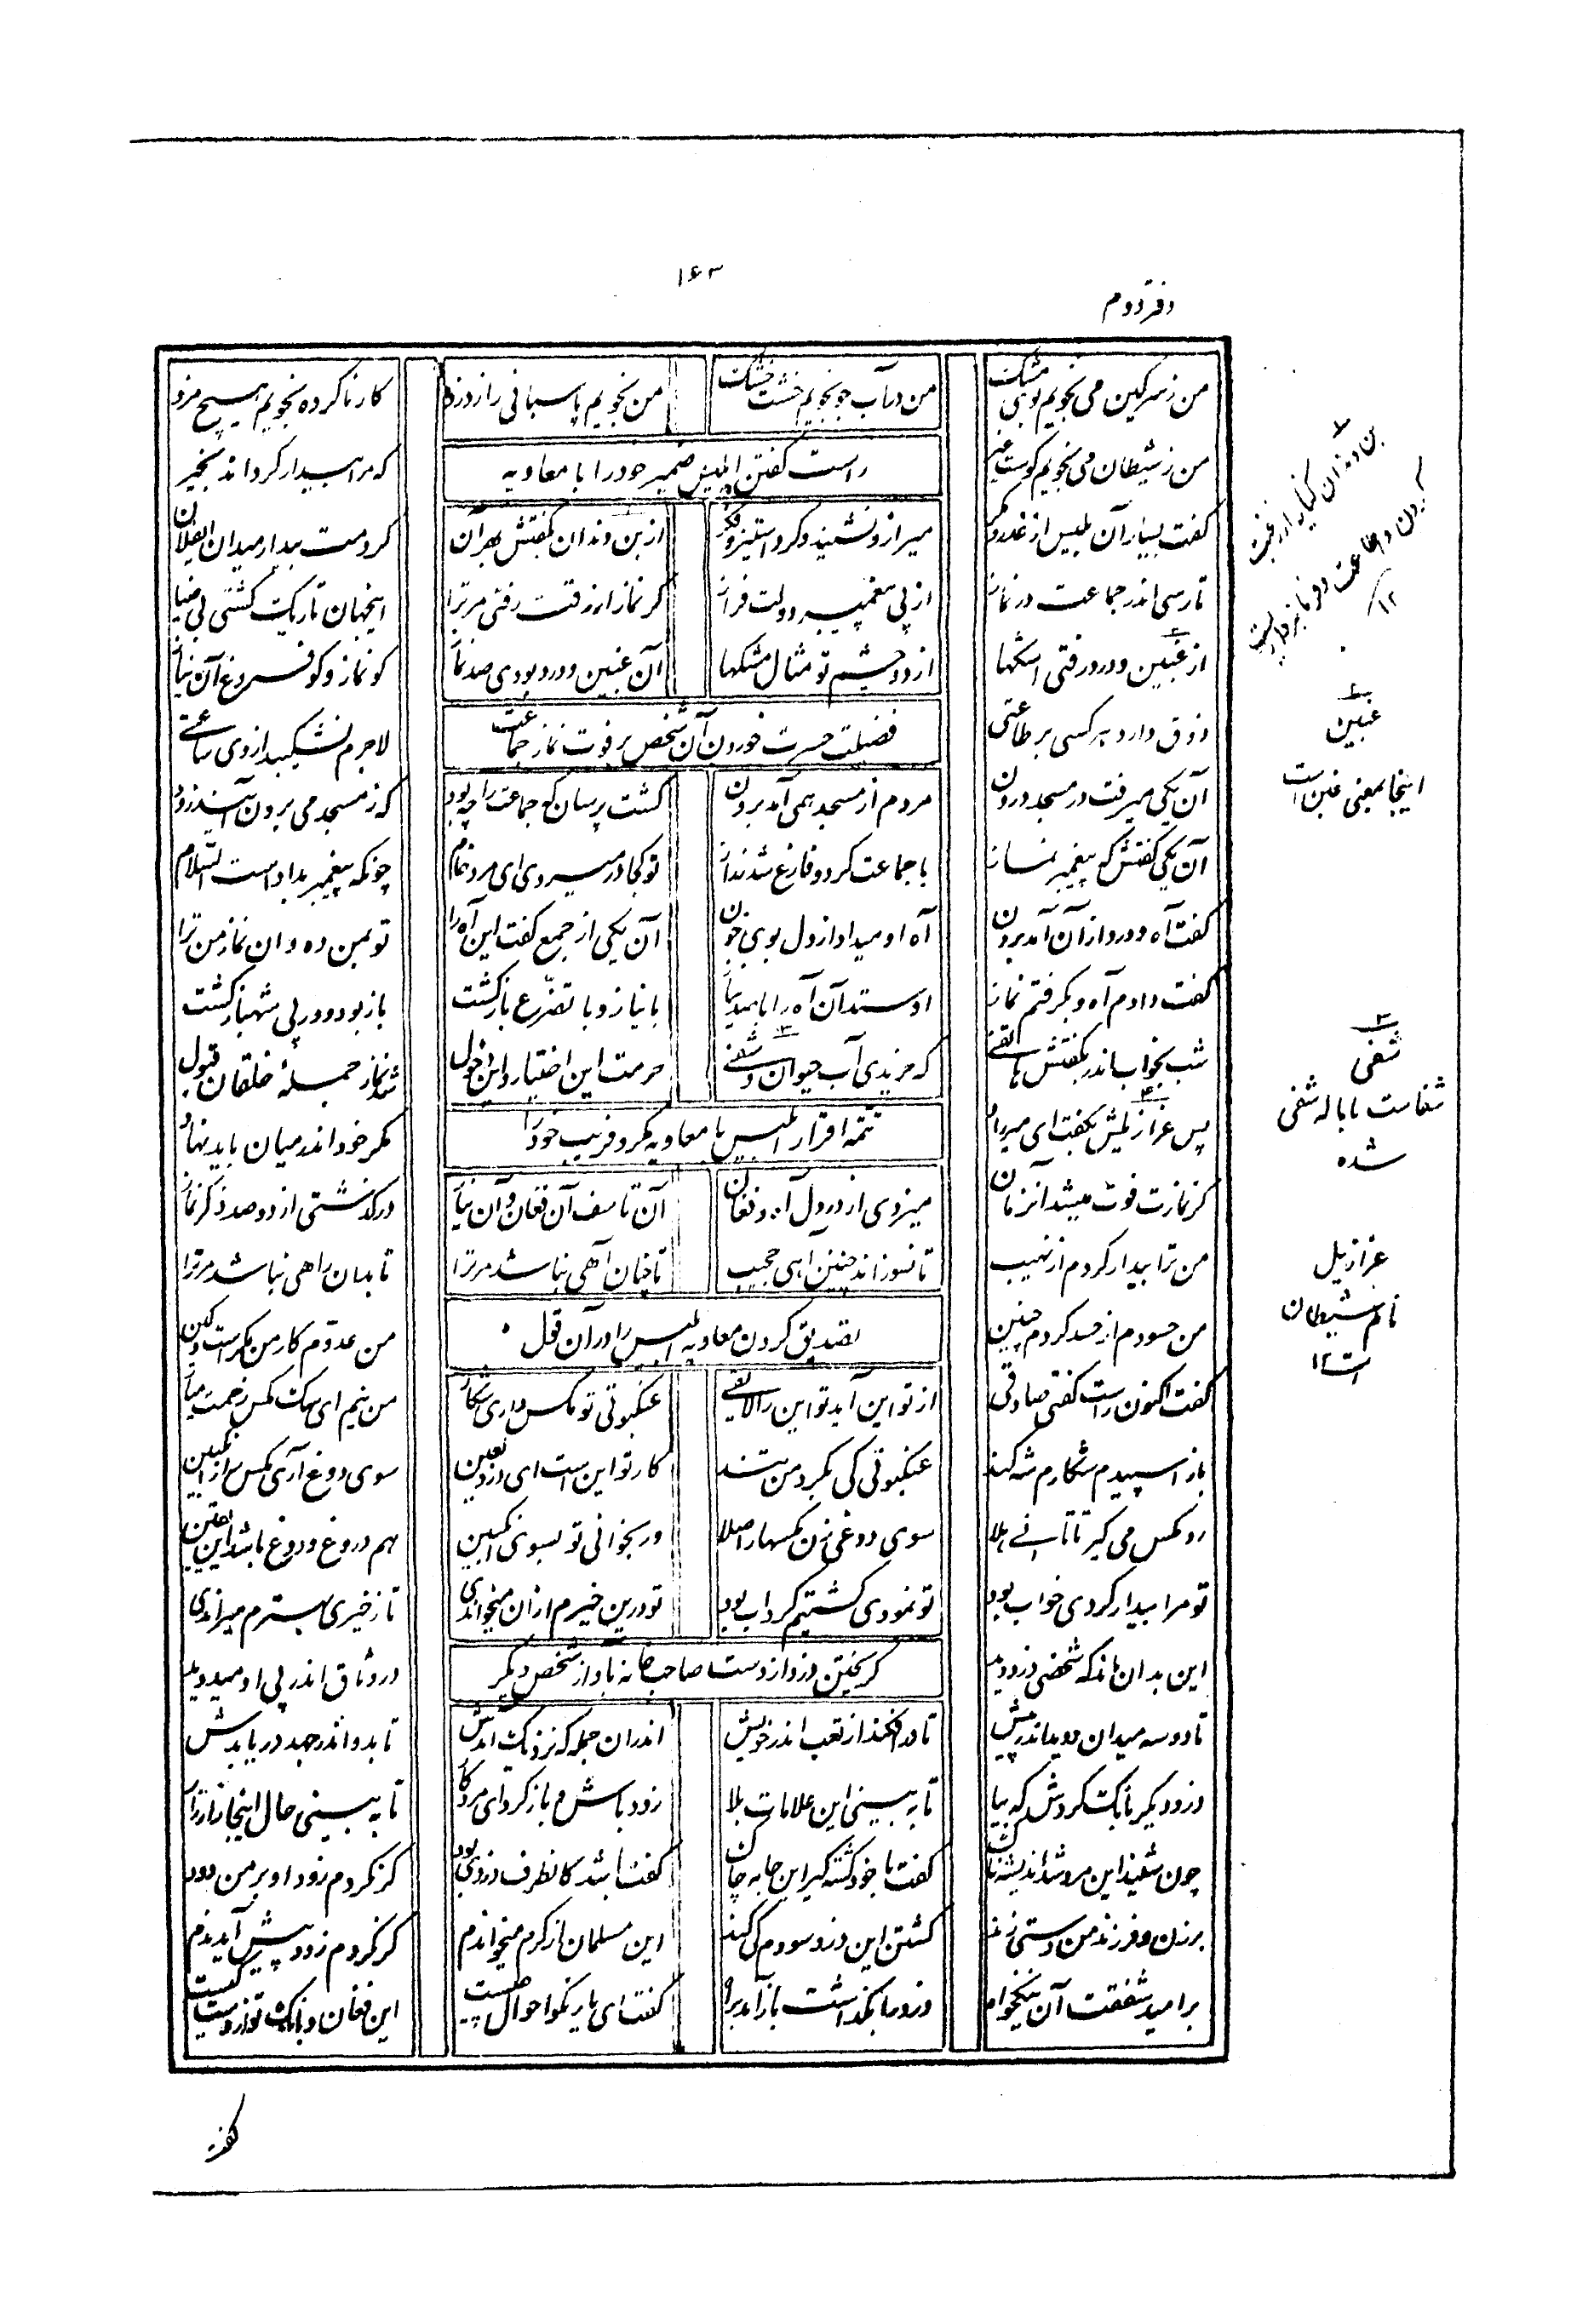 ۱۶۳
دفتر دوم
من ز سرگین می نجویم بوی مشک من در آب جو نجویم خشت خشک من نجویم پاسبانی را ز دزد کار ناکرده نجویم هیچ مزد
راست گفتن ابلیس ضمیر خود را با معاویه
من ز شیطان می نجویم کوست غیر که مرا بیدار گرداند بخیر
گفت بسیار آن بلیس از غدر و مکر میر ازو نشنید و کرد استیز و فکر از بن دندان بگفتش بهر آن کردمت بیدار میدان ای فلان
تا رسی اندر جماعت در نماز از پی پیغمبر دولت فراز گر نماز از وقت رفتی مر ترا اینجهان تاریک گشتی بی ضیا
از غبین و درد رفتی اشکها از دو چشم تو مثال مشکها آن غبین و درد بودی صد نماز کو نماز و کو فروغ آن نیاز
فضیلت حسرت خوردن آن شخص بر فوت نماز جماعت
ذوق دارد هر کسی بر طاعتی لاجرم نشکیبد از وی ساعتی
آن یکی میرفت در مسجد درون مردم از مسجد همی آمد برون گشت پرسان که جماعت را چه بود که ز مسجد می برون آیند زود
آن یکی گفتش که پیغمبر نماز با جماعت کرد و فارغ شد ز راز تو کجا در میروی ای مرد خام چونکه پیغمبر بداد است السلام
گفت آه و درد از آن آمد برون آه او میداد از دل بوی خون آن یکی از جمع گفت این آه را تو بمن ده وان نماز من ترا
گفت دادم آه و بگرفتم نماز او ستد آن آه را با صد نیاز با نیاز و با تضرع بازگشت باز بود و در پی شهباز گشت
شب بخواب اندر بگفتش هاتفی که خریدی آب حیوان و شفی حرمت این اختیار و این دخول شد نماز جملهٔ خلقان قبول
تتمه اقرار ابلیس با معاویه مکر و فریب خود را
پس عزازیلش بگفت ای میر راد مکر خود اندر میان باید نهاد
گر نمازت فوت میشد آنزمان میزدی از درد دل آه و فغان آن تاسف آن فغان و آن نیاز درگذشتی از دو صد ذکر نماز
من ترا بیدار کردم از نهیب تا نسوزاند چنین آهی حجیب تا چنان آهی نباشد مر ترا تا بدان راهی نباشد مر ترا
تصدیق کردن معاویه ابلیس را در آن قول
من حسودم از حسد کردم چنین من عدوم کار من مکر است و کین
گفت اکنون راست گفتی صادقی از تو این آید تو این را لایقی عنکبوتی تو مگس داری شکار من نیم ای سگ مگس زحمت میار
باز اسپیدم شکارم شه کند عنکبوتی کی بگرد من تند کار تو این است ای دزد لعین سوی دوغ آری مگس را ز انگبین
رو مگس می گیر تا تانی هلا سوی دوغی زن مگسها را صلا ور بخوانی تو بسوی انگبین هم دروغ و دوغ باشد این یقین
تو مرا بیدار کردی خواب بود تو نمودی کشتیم گرداب بود تو درین خیرم از ان میخواندی تا ز خیری بهترم میراندی
گریختن دزد از دست صاحب خانه بآواز شخص دیگر
این بدان ماند که شخصی دزد دید در وثاق اندر پی او میدوید
تا دو سه میدان دوید اندر پیش تا در افکند از تعب اندر خویش اندر ان حمله که نزدیک آمدش تا بدو اندر جهد دریابدش
دزد دیگر بانگ کردش که بیا تا به بینی این علامات بلا زود باش و باز گرد ای مرد کار تا به بینی حال اینجا زار زار
چون شنید این مرد شد اندیشه ناک گفت با خود گشته گیر این جامه چاک گفت باشد کانطرف دزدی بود گر نگردم زود او بر من دود
بر زن و فرزند من دستی زند کشتن این دزد سودم کی کند این مسلمان از کرم میخواندم گر نگردم زود پیش آید ندم
بر امید شفقت آن نیکخواه دزد را بگذاشت باز آمد براه گفت ای یار نکو احوال چیست این فغان و بانگ تو از دست کیست
بن دندان کنایه از رغبت
۱۲
غبین
اینجا بمعنی غبن است
شفی
شفاست با اماله شفی
شده
عزازیل
نام شیطان
است ۱۲
گفت